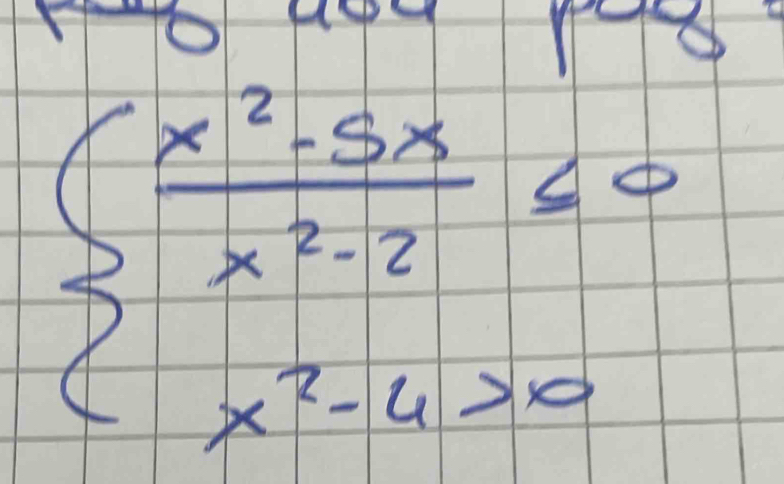 x² - 5x
x² - 2
≤ 0
x² - 4 > 0